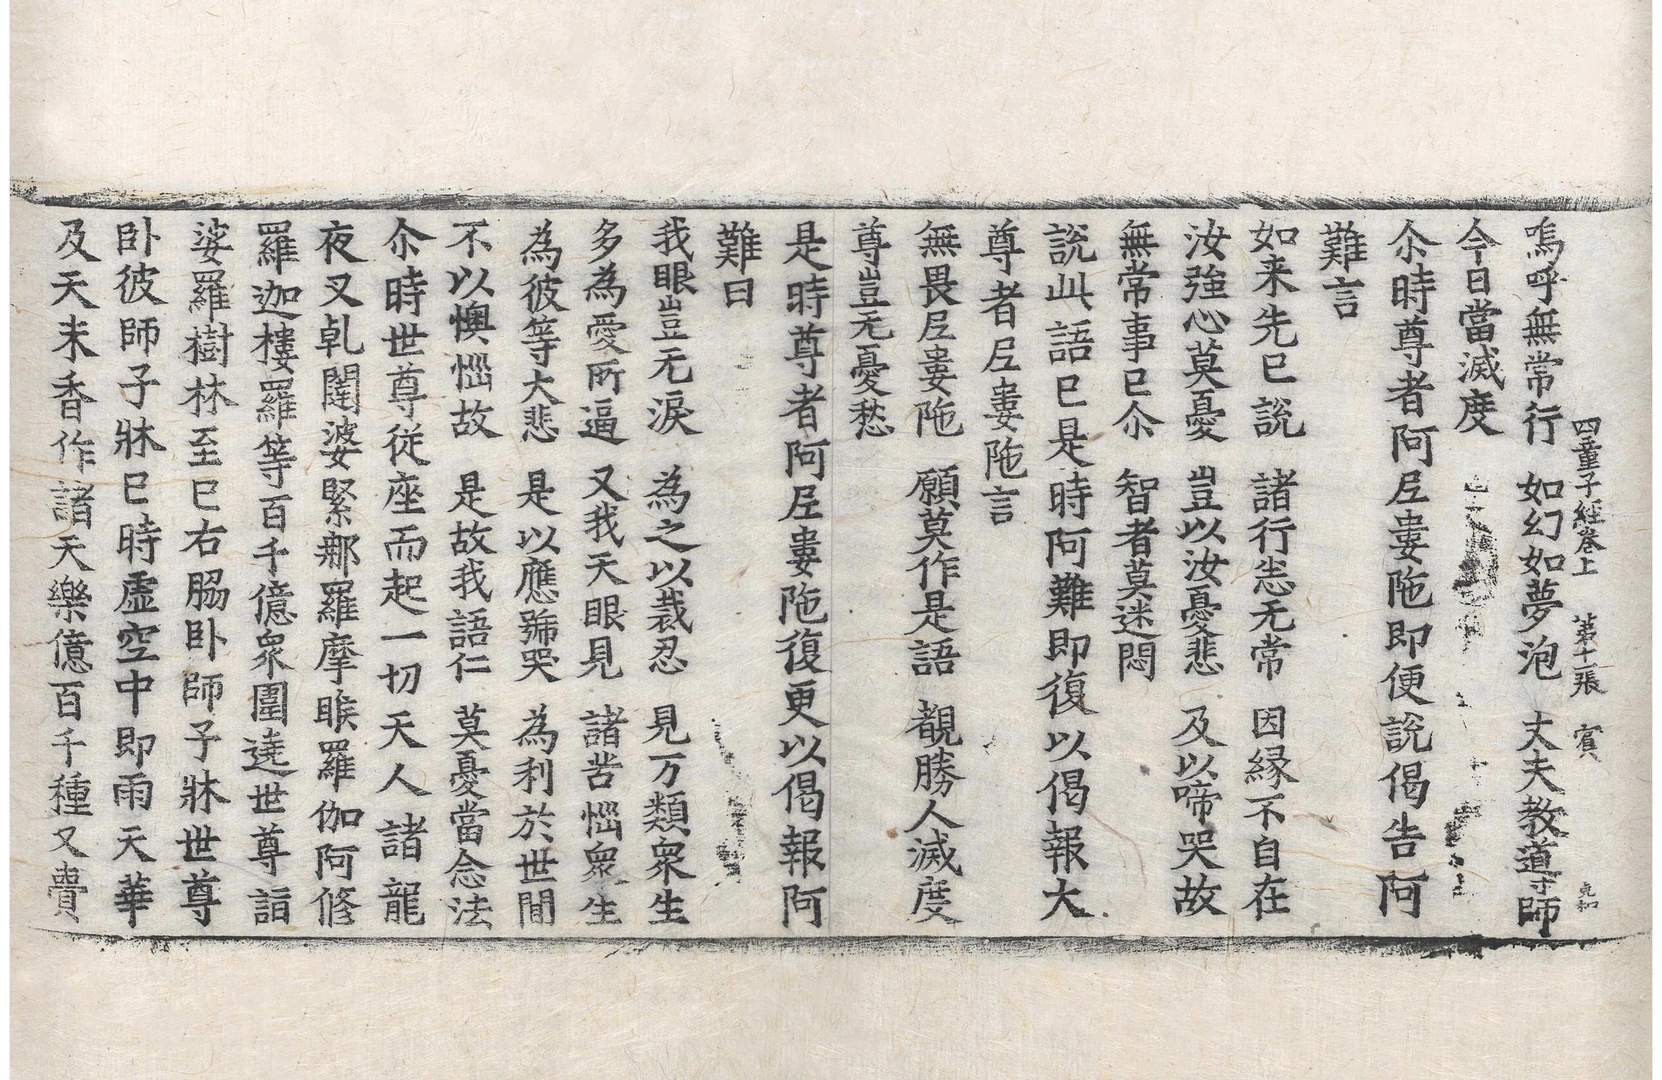 四童子經卷上 第十一張 賓 克和
嗚呼無常行 如幻如夢泡 丈夫教導師
今日當滅度
尒時尊者阿𡰱婁陁即便說偈告阿
難言
如来先已説 諸行恙无常 因縁不自在
汝強心莫憂 豈以汝憂悲 及以啼哭故
無常事已尒 智者莫迷悶
說此語已是時阿難即復以偈報大
尊者𡰱婁陁言
無畏𡰱婁陁 願莫作是語 覩勝人滅度
尊豈无憂愁
是時尊者阿𡰱婁陁復更以偈報阿
難曰
我眼豈无淚 為之以裁忍 見万類衆生
多為愛所逼 又我天眼見 諸苦惱衆生
為彼等大悲 是以應號哭 為利於世間
不以懊惱故 是故我語仁 莫憂當念法
尒時世尊従座而起一切天人諸龍
夜叉乹闥婆緊那羅摩睺羅伽阿修
羅迦樓羅等百千億衆圍遶世尊詣
娑羅樹林至已右脇卧師子牀世尊
卧彼師子牀已時虛空中即雨天華
及天末香作諸天樂億百千種又賫